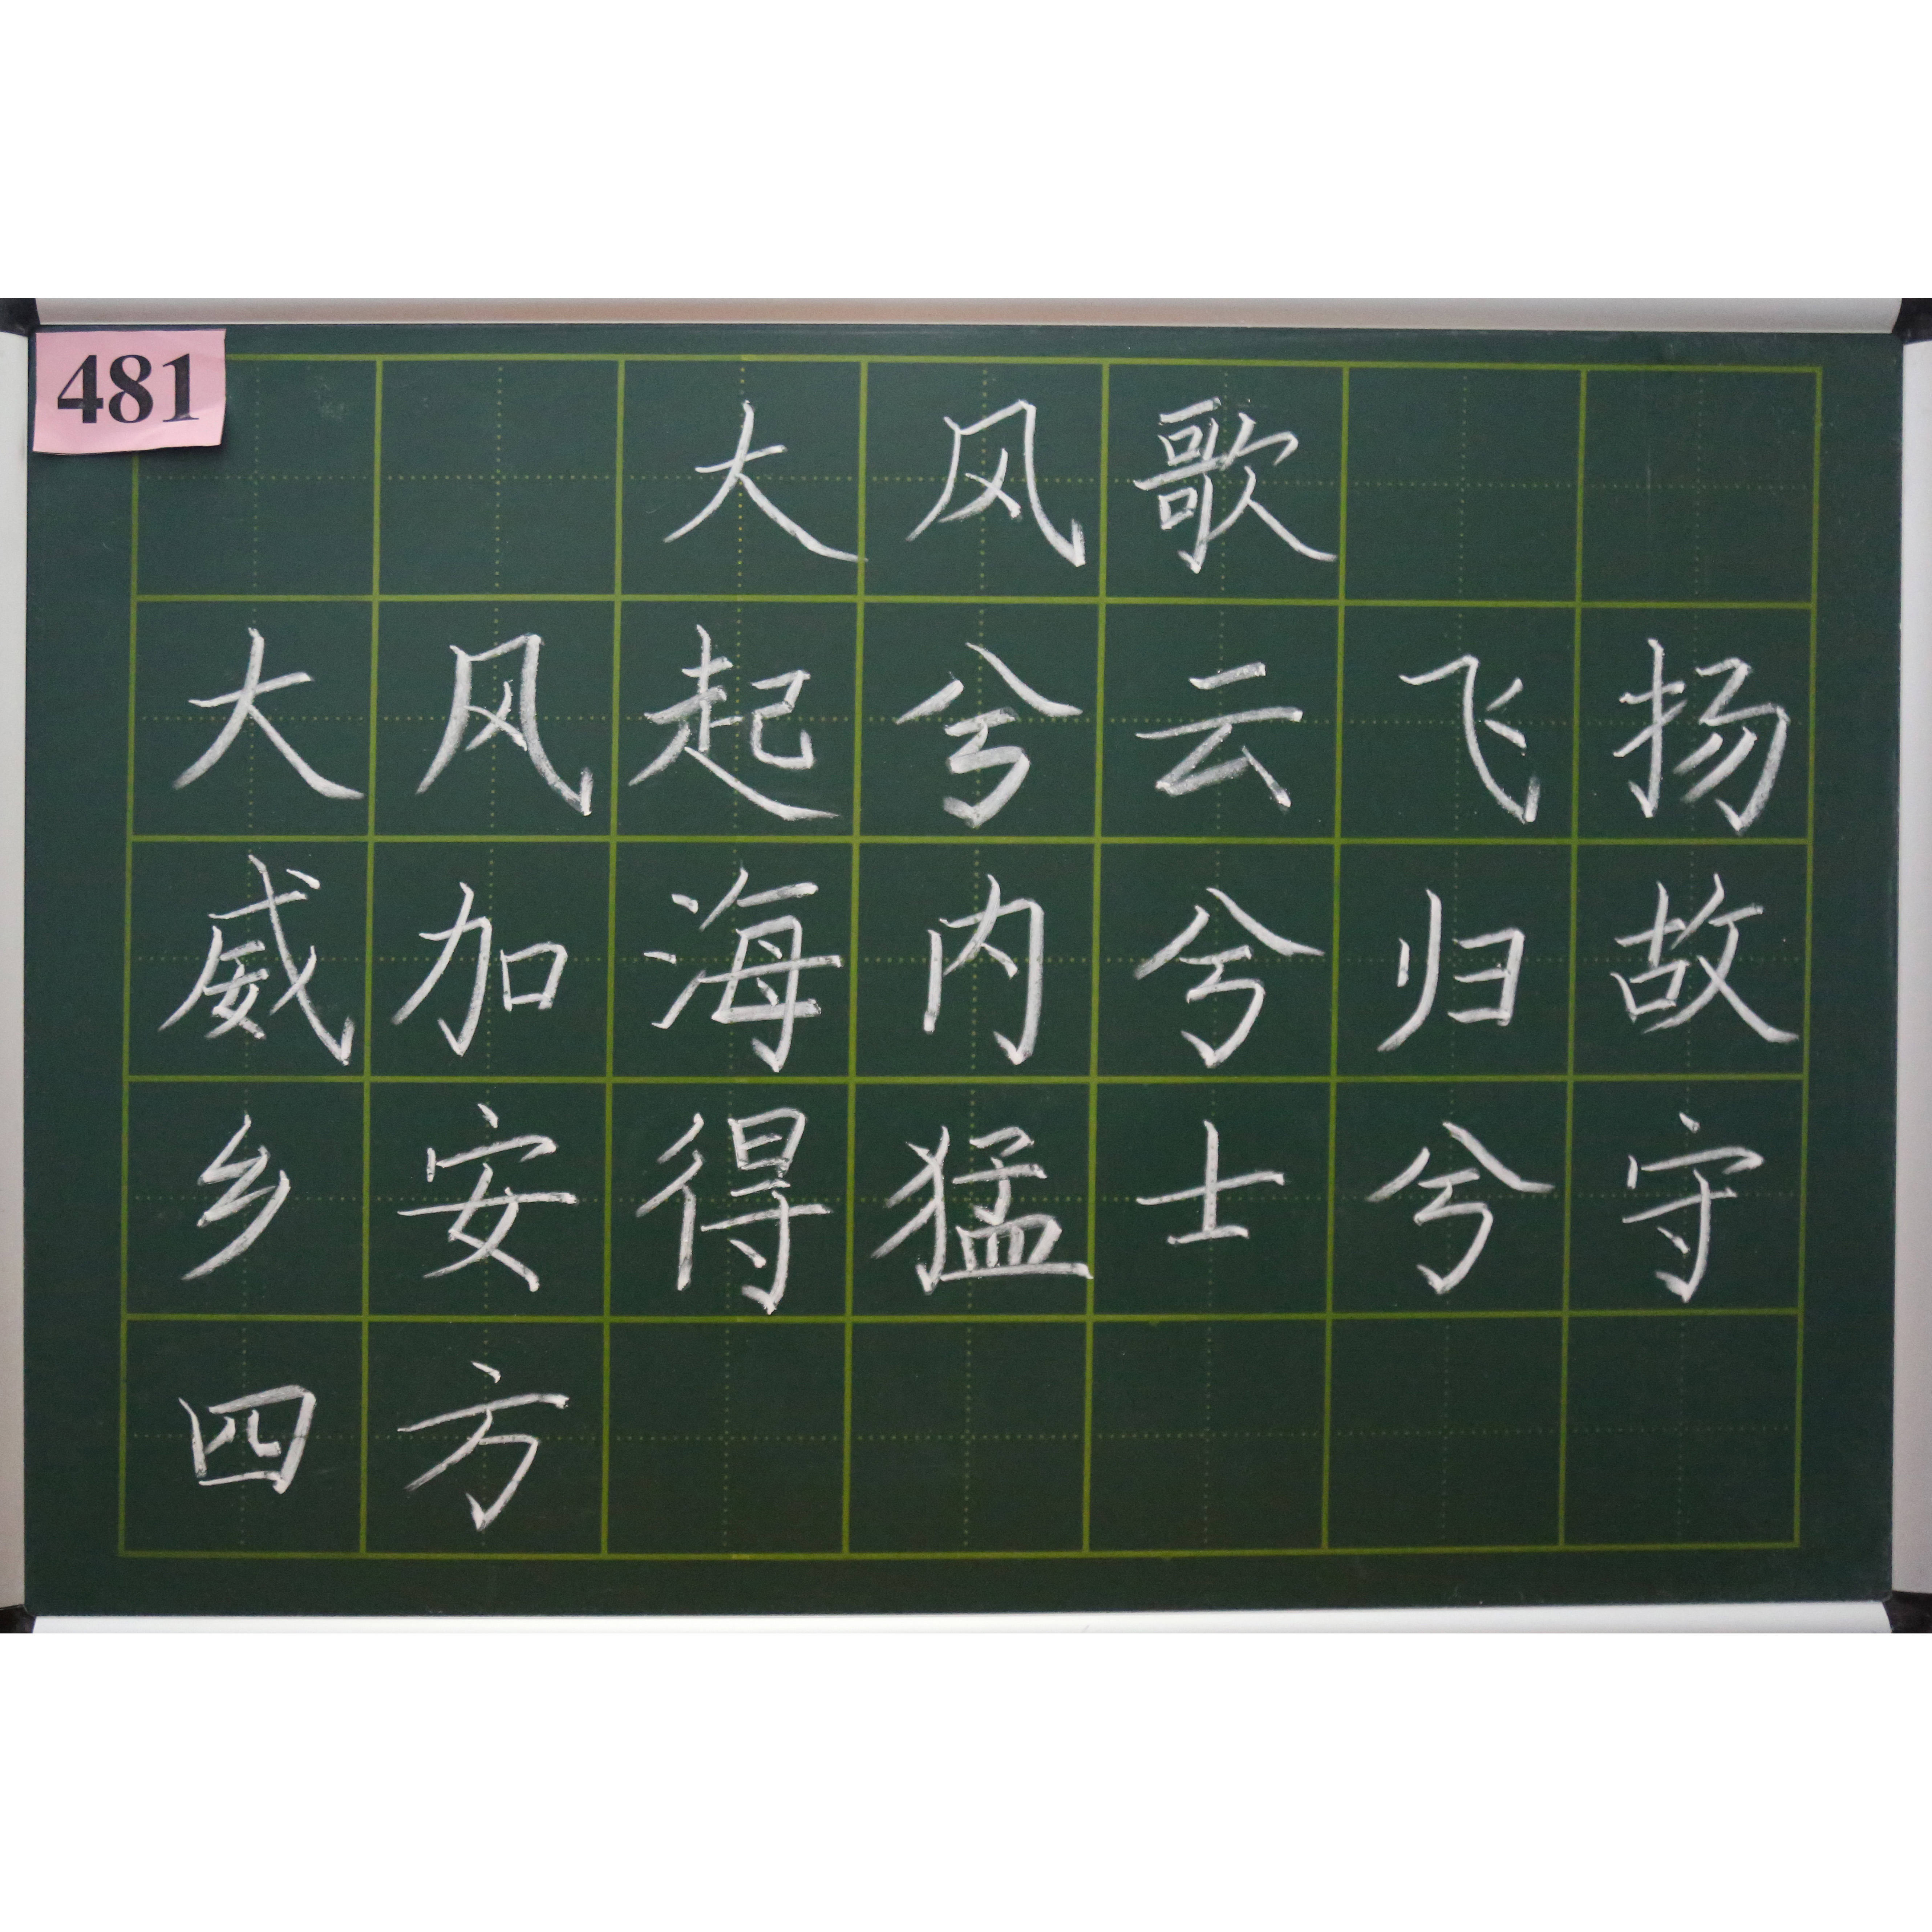 481
大风歌
大风起兮云飞扬
威加海内兮归故
乡安得猛士兮守
四方